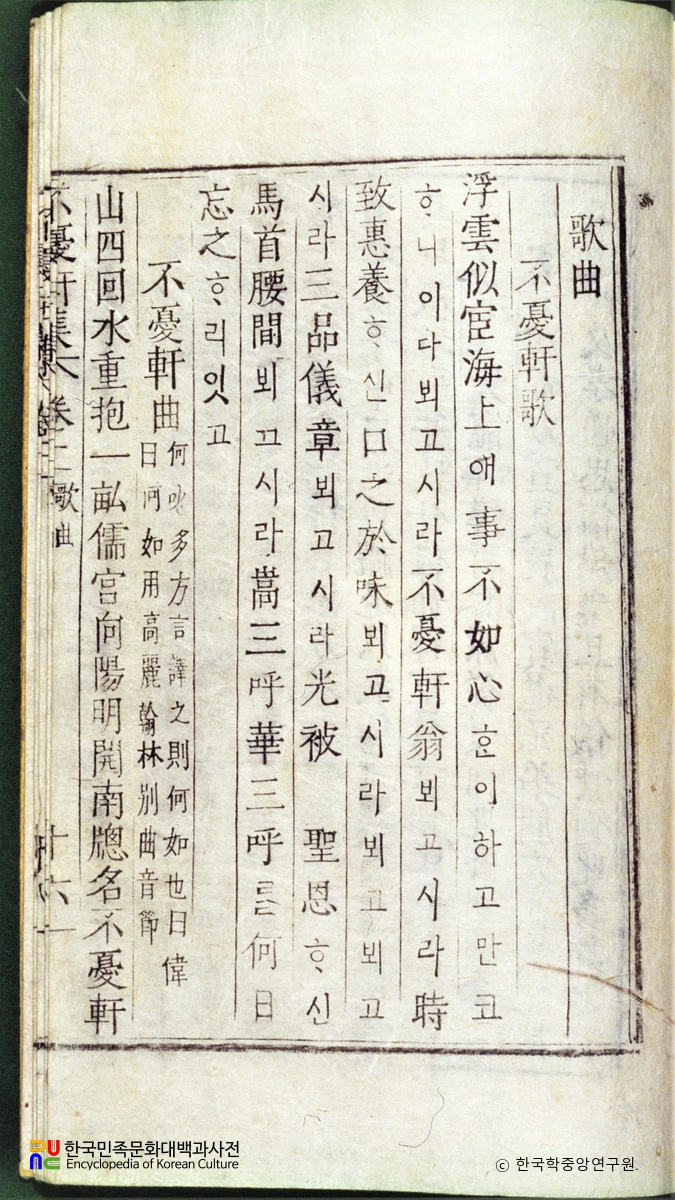 歌曲
不憂軒歌
浮雲似宦海上애事不如心ᄒᆞᆫ이하고만코
ᄒᆞ니이다뵈고시라不憂軒翁뵈고시라時
致惠養ᄒᆞ신口之於味뵈고시라뵈고뵈고
시라三品儀章뵈고시라光被 聖恩ᄒᆞ신
馬首腰間뵈고시라嵩三呼華三呼를何日
忘之ᄒᆞ리잇고
不憂軒曲
何叱多方言譯之則何如也曰偉
日何如用高麗翰林別曲音節
山四回水重抱一畝儒宮向陽明開南牕名不憂軒
不憂軒集 卷二 歌曲 十六
한국민족문화대백과사전
Encyclopedia of Korean Culture
© 한국학중앙연구원.